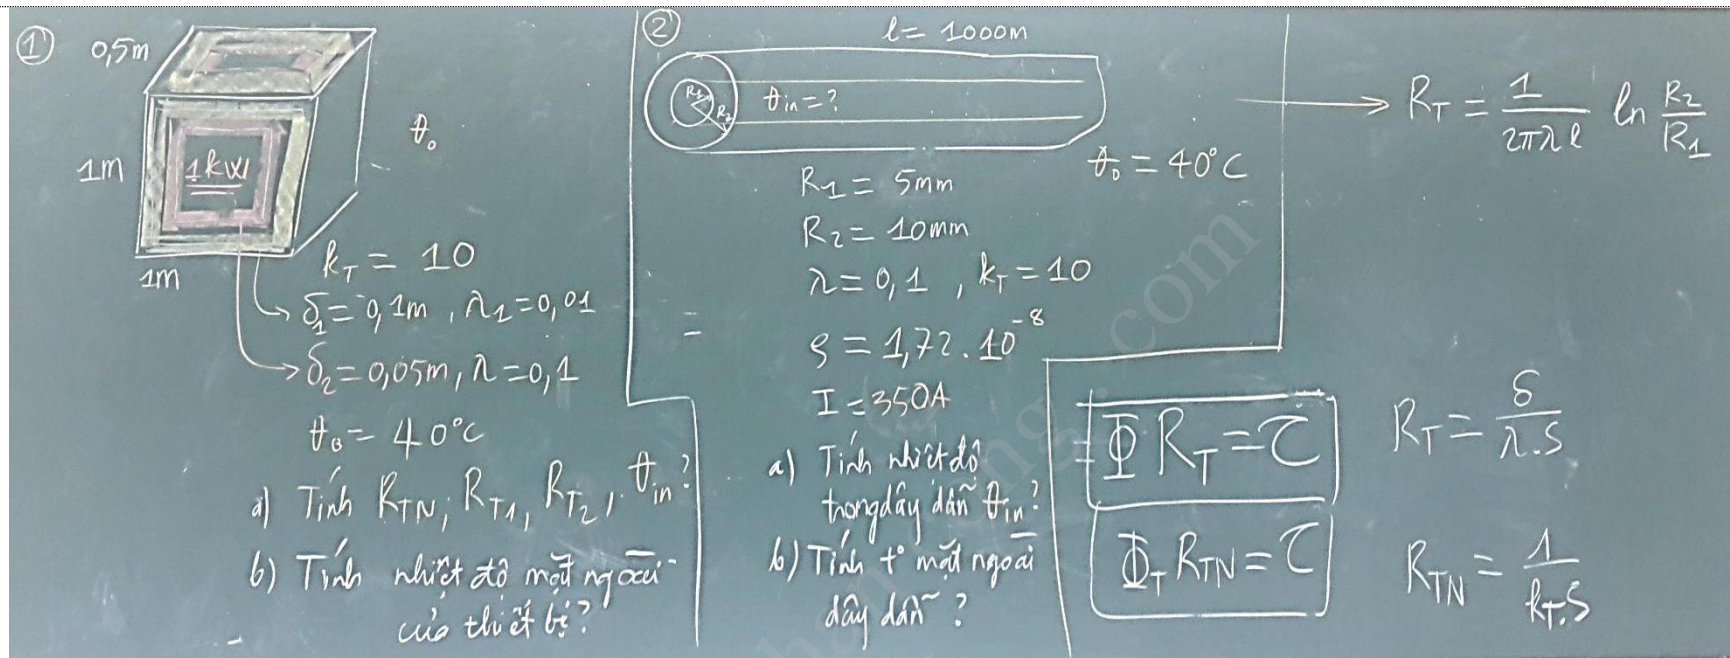 ①
0,5m
1m
1kW
θ₀
1m
k_T = 10
δ₁ = 0,1m , λ₁ = 0,01
δ₂ = 0,05m, λ = 0,1
θ₀ = 40°C
a) Tính R_TN, R_T1, R_T2, θ_in?
b) Tính nhiệt độ mặt ngoài
của thiết bị?
②
l = 1000m
R₁
R₂
θ_in = ?
θ₀ = 40°C
R₁ = 5mm
R₂ = 10mm
λ = 0,1 , k_T = 10
ρ = 1,72.10⁻⁸
I = 350A
a) Tính nhiệt độ
trong dây dẫn θ_in?
b) Tính t° mặt ngoài
dây dẫn?
R_T = 1/(2πλl) ln R₂/R₁
Φ R_T = τ
R_T = δ/(λ.S)
Φ_T R_TN = τ
R_TN = 1/(k_T.S)